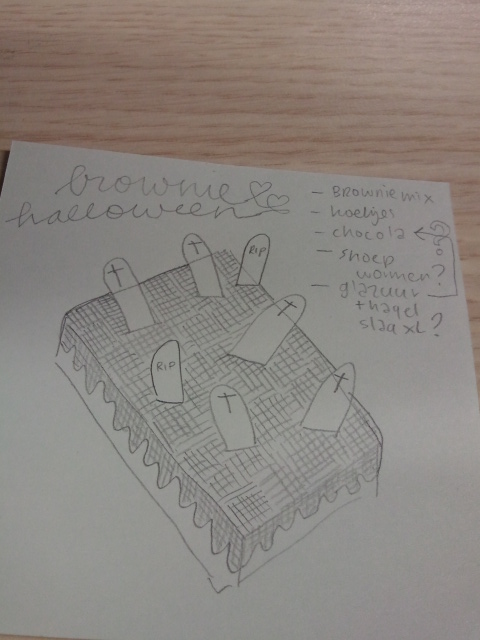 brownie
halloween
- Brownie mix
- koekjes
- chocola ?
- snoep
wormen?
- glazuur
+ hagel
slag xl?
RIP
RIP